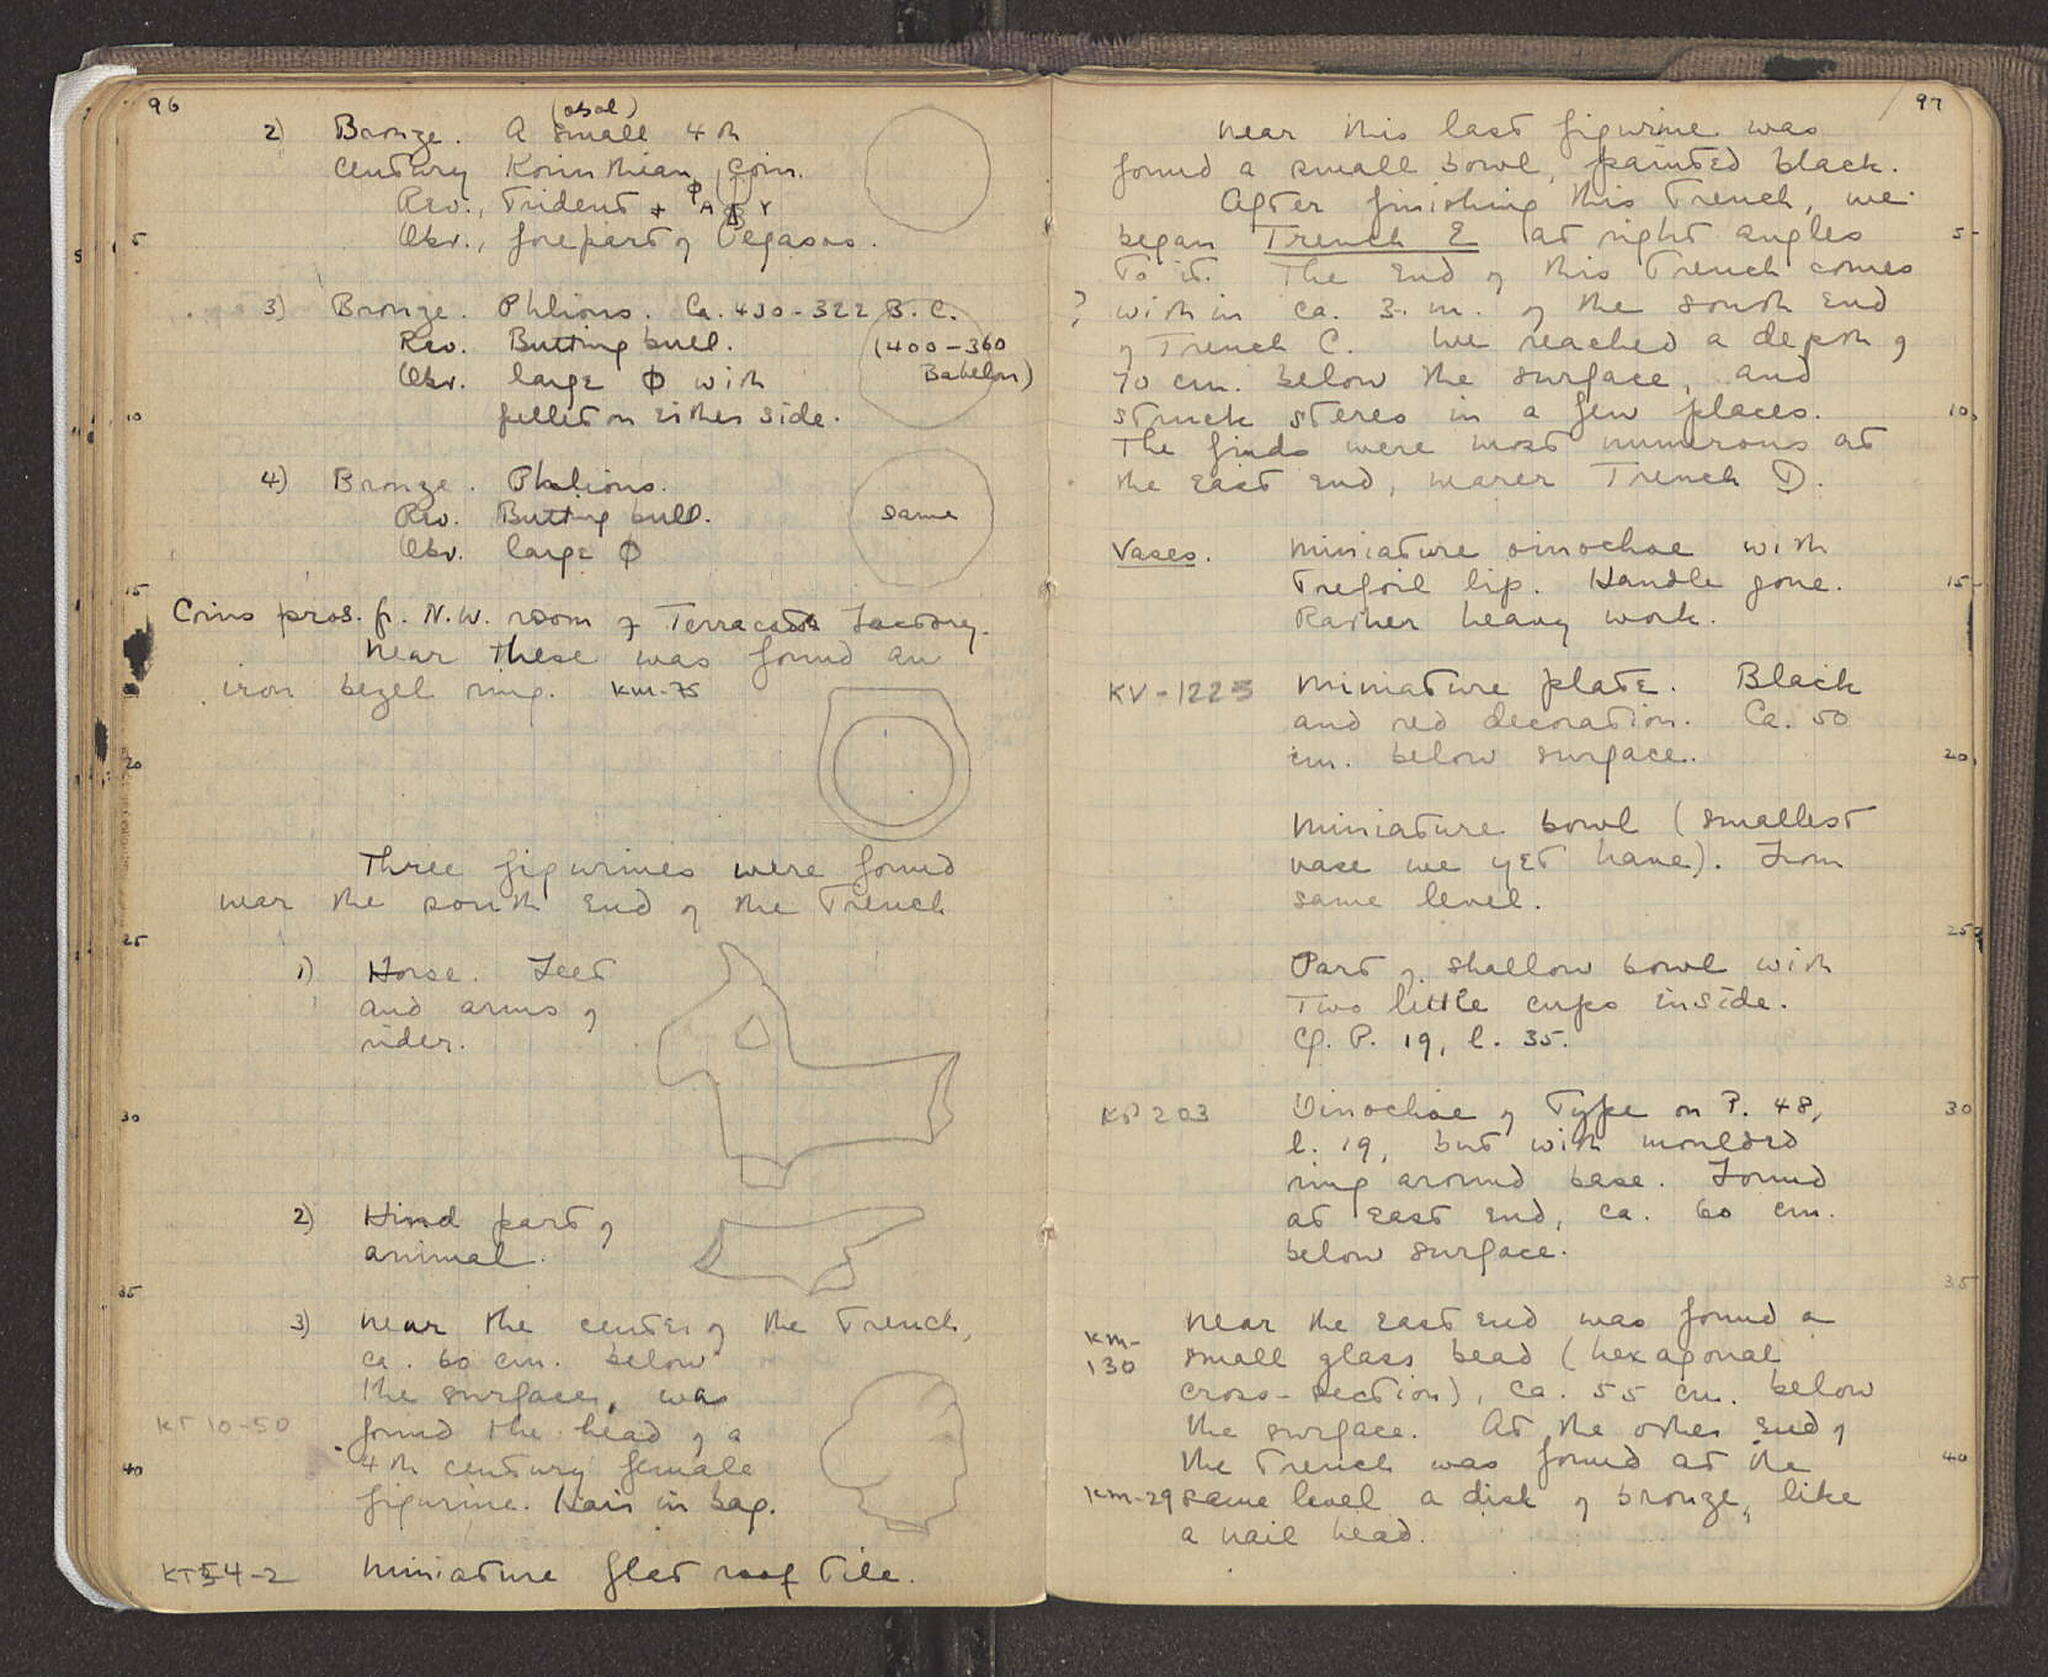 96
(obol)
2) Bronze. A small 4th
century Korinthian coin.
Rev., Trident +
Obv., forepart of Pegasos.
5
3) Bronze. Phlious. Ca. 430-322 B.C.
Rev. Butting bull. (400-360
Obv. large Φ with Babelon)
10
pellet on either side.
4) Bronze. Phlious.
Rev. Butting bull. same
Obv. large Φ
15
Coins pros. fr. N.W. room of Terracotta Factory.
Near these was found an
iron bezel ring. KM-75
20
Three figurines were found
near the south end of the Trench
25
1) Horse. Feet
and arms of
rider.
30
2) Hind part of
animal.
35
3) Near the center of the Trench,
ca. 60 cm. below
the surface, was
KT 10-50 found the head of a
40 4th century female
figurine. Hair in bag.
KT54-2 Miniature flat roof tile.
97
Near this last figurine was
found a small bowl, painted black.
After finishing this Trench, we
began Trench E at right angles 5
to it. The end of this Trench comes
? within ca. 3. m. of the south end
of Trench C. We reached a depth of
70 cm. below the surface, and
struck stereo in a few places. 10
The finds were most numerous at
the east end, nearer Trench D.
Vases. Miniature oinochoe with
trefoil lip. Handle gone. 15
Rather heavy work.
KV-1225 Miniature plate. Black
and red decoration. Ca. 50
cm. below surface. 20
Miniature bowl (smallest
vase we yet have). From
same level.
25
Part of shallow bowl with
two little cups inside.
Cf. P. 19, l. 35.
KP 203 Oinochoe of Type on P. 48, 30
l. 19, but with moulded
ring around base. Found
at east end, ca. 60 cm.
below surface.
35
Near the east end was found a
KM-
130 small glass bead (hexagonal
cross-section), ca. 55 cm. below
the surface. At the other end of
the Trench was found at the 40
KM-29 same level a disk of bronze, like
a nail head.